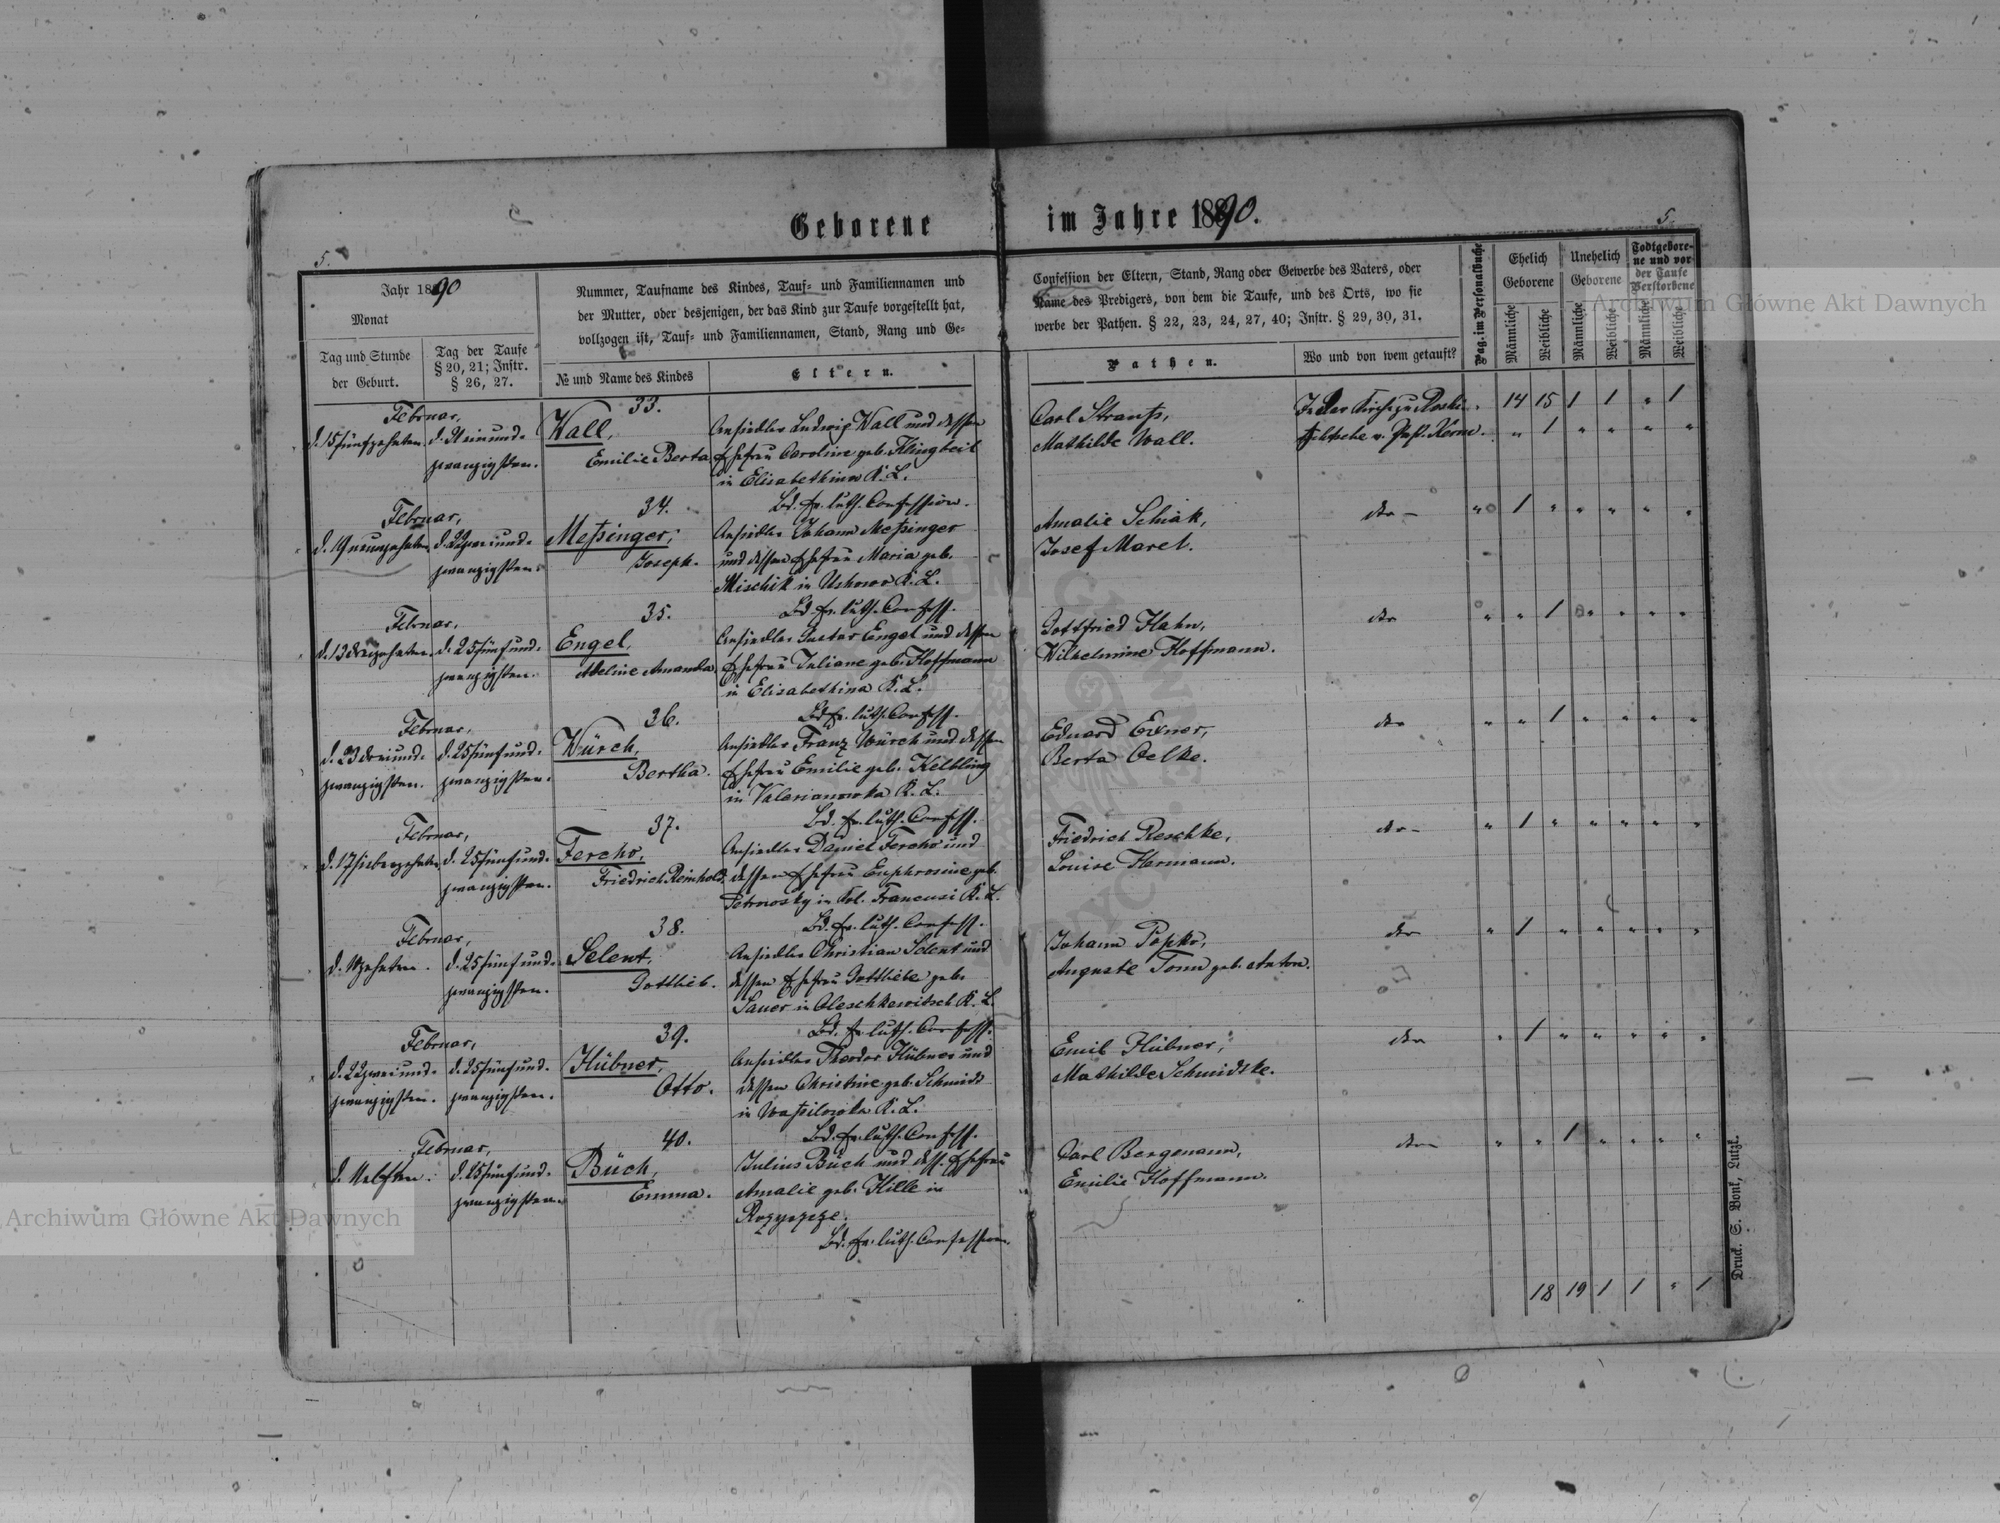 Geborene im Jahre 1890.
5.
5.
Jahr 1890
Monat
Tag und Stunde
der Geburt.
Tag der Taufe
§ 20, 21; Instr.
§ 26, 27.
Nummer, Taufname des Kindes, Tauf- und Familiennamen und
der Mutter, oder desjenigen, der das Kind zur Taufe vorgestellt hat,
vollzogen ist, Tauf- und Familiennamen, Stand, Rang und Ge-
№ und Name des Kindes
Eltern.
Confession der Eltern, Stand, Rang oder Gewerbe des Vaters, oder
Name des Predigers, von dem die Taufe, und des Orts, wo sie
werbe der Pathen. § 22, 23, 24, 27, 40; Instr. § 29, 30, 31.
Pathen.
Wo und von wem getauft?
Pag. im Personalbuche
Ehelich
Geborene
Unehelich
Geborene
Todtgebore-
ne und vor
der Taufe
Verstorbene
Männliche
Weibliche
Männliche
Weibliche
Männliche
Weibliche
14 15 1 1 " 1
Februar,
d. 15 fünfzehnten.
d. 21 ein und-
zwanzigsten.
33.
Wall,
Emilie Berta
Ansiedler Ludwig Wall und dessen
Ehefrau Caroline geb. Klingbeil
in Elisabethinow K. L.
Bd. ev. luth. Confession.
Carl Strauß,
Mathilde Wall.
In der Kirche zu
v. Past. Kern.
" 1 " " " "
Februar,
d. 19 neunzehnten
d. 22 zwei und-
zwanzigsten.
34.
Meßinger,
Joseph.
Ansiedler Johann Meßinger
und dessen Ehefrau Maria geb.
Mischik in Ushowo K. L.
Bd. ev. luth. Confess.
Amalie Schiak,
Josef Maret.
do
" 1 " " " " "
Februar,
d. 13 dreizehnten.
d. 25 fünf und-
zwanzigsten.
35.
Engel,
Adeline Amanda
Ansiedler Gustav Engel und dessen
Ehefrau Juliane geb. Hoffmann
in Elisabethina K. L.
Bd. ev. luth. Confess.
Gottfried Hahn,
Wilhelmine Hoffmann.
do
" " 1 " " " "
Februar,
d. 23 drei und-
zwanzigsten.
d. 25 fünf und-
zwanzigsten.
36.
Würch,
Bertha.
Ansiedler Franz Würch und dessen
Ehefrau Emilie geb. Kelbling
in Valerianowka K. L.
Bd. ev. luth. Confess.
Eduard Exner,
Berta Oelke.
do
" " 1 " " " "
Februar,
d. 17 siebenzehnten
d. 25 fünf und-
zwanzigsten.
37.
Fercho,
Friedrich Reinhold.
Ansiedler Daniel Fercho und
dessen Ehefrau Euphrosine geb.
Petrowsky in Kol. Francusi K. L.
Bd. ev. luth. Confess.
Friedrich Reschke,
Louise Hermann.
do
" 1 " " " " "
Februar,
d. 10 zehnten.
d. 25 fünf und-
zwanzigsten.
38.
Selent,
Gottlieb.
Ansiedler Christian Selent und
dessen Ehefrau Gottliebe geb.
Sauer in Oleschkewitsch K. L.
Bd. ev. luth. Confess.
Johann Popko,
Auguste Tonn geb. Anton.
do
" 1 " " " " "
Februar,
d. 22 zwei und-
zwanzigsten.
d. 25 fünf und-
zwanzigsten.
39.
Hübner,
Otto.
Ansiedler Theodor Hübner und
dessen Christine geb. Schmidt
in Waßilowka K. L.
Bd. ev. luth. Confess.
Emil Hübner,
Mathilde Schmidtke.
do
" 1 " " " " "
Februar,
d. 11 elften.
d. 25 fünf und-
zwanzigsten.
40.
Büch,
Emma.
Julius Büch und dess. Ehefrau
Amalie geb. Hille in
Rozyszcze.
Bd. ev. luth. Confession.
Carl Bergmann,
Emilie Hoffmann.
do
" " 1 " " " "
18 19 1 1 " 1
Druck. S. Bonk, Lutzk.
Archiwum Główne Akt Dawnych
Archiwum Główne Akt Dawnych